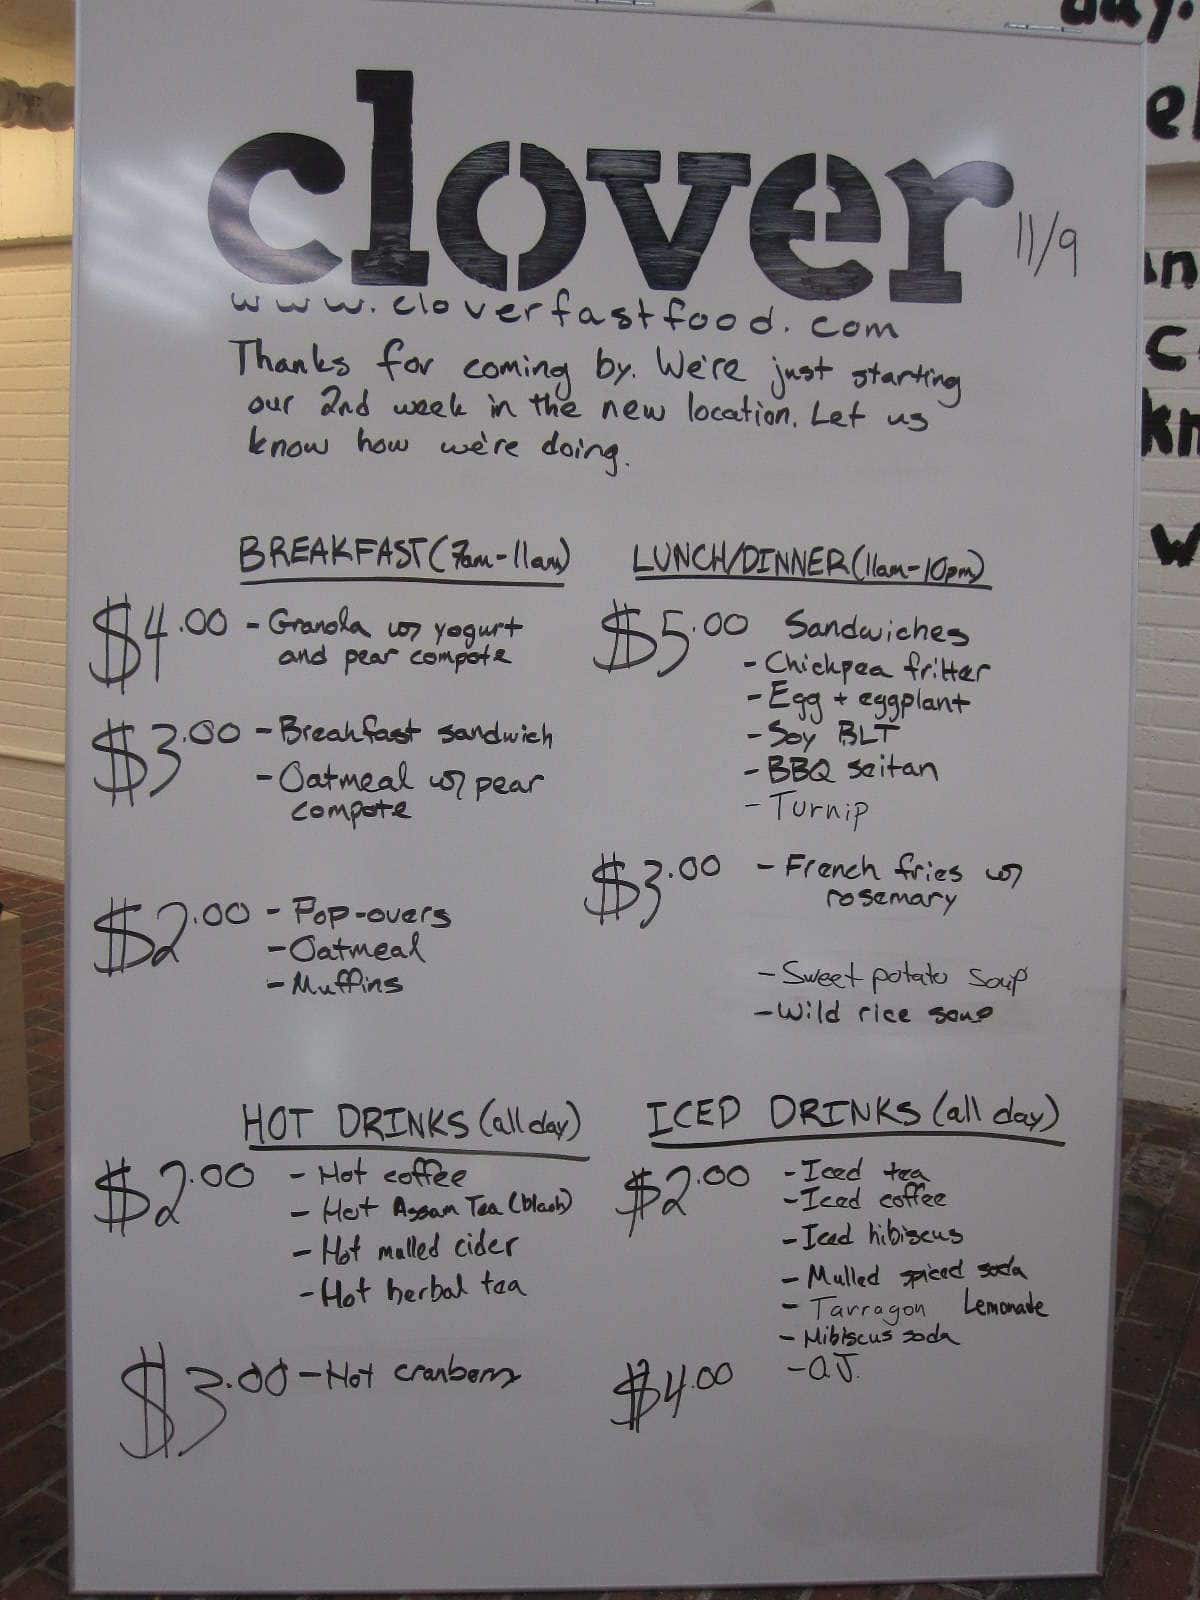 clover
11/9
www.cloverfastfood.com
Thanks for coming by. We're just starting
our 2nd week in the new location. Let us
know how we're doing.
BREAKFAST (7am-11am)
$4.00 - Granola w/ yogurt
and pear compote
$3.00 - Breakfast sandwich
- Oatmeal w/ pear
compote
$2.00 - Pop-overs
- Oatmeal
- Muffins
LUNCH/DINNER (11am-10pm)
$5.00 Sandwiches
- Chickpea fritter
- Egg + eggplant
- Soy BLT
- BBQ seitan
- Turnip
$3.00 - French fries w/
rosemary
- Sweet potato soup
- Wild rice soup
HOT DRINKS (all day)
$2.00 - Hot coffee
- Hot Assam Tea (black)
- Hot mulled cider
- Hot herbal tea
$3.00 - Hot cranberry
ICED DRINKS (all day)
$2.00 - Iced tea
- Iced coffee
- Iced hibiscus
- Mulled spiced soda
- Tarragon Lemonade
- Hibiscus soda
$4.00 - O.J.